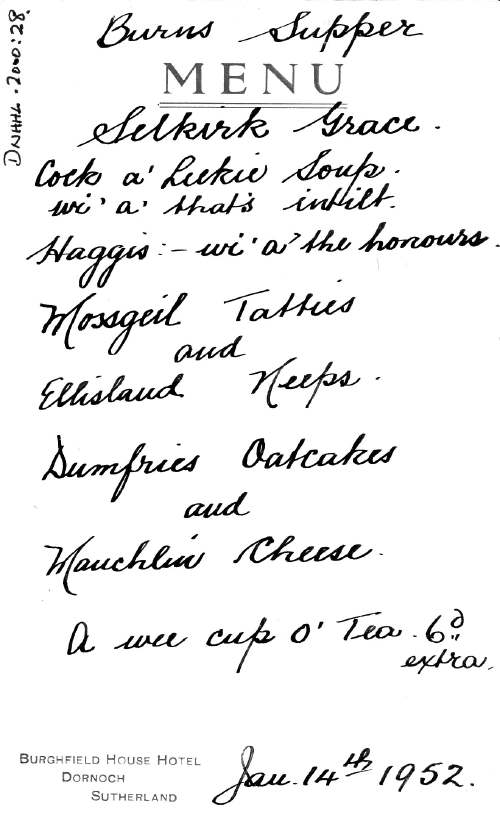 DNHHL·2000:28.
Burns Supper
MENU
Selkirk Grace.
Cock a' Leekie Soup.
wi' a' that's intilt.
Haggis:- wi' a' the honours.
Mossgeil Tatties
and
Ellisland Neeps.
Dumfries Oatcakes
and
Mauchlin Cheese.
A wee cup o' Tea. 6d
extra.
BURGHFIELD HOUSE HOTEL
DORNOCH
SUTHERLAND
Jan. 14th 1952.